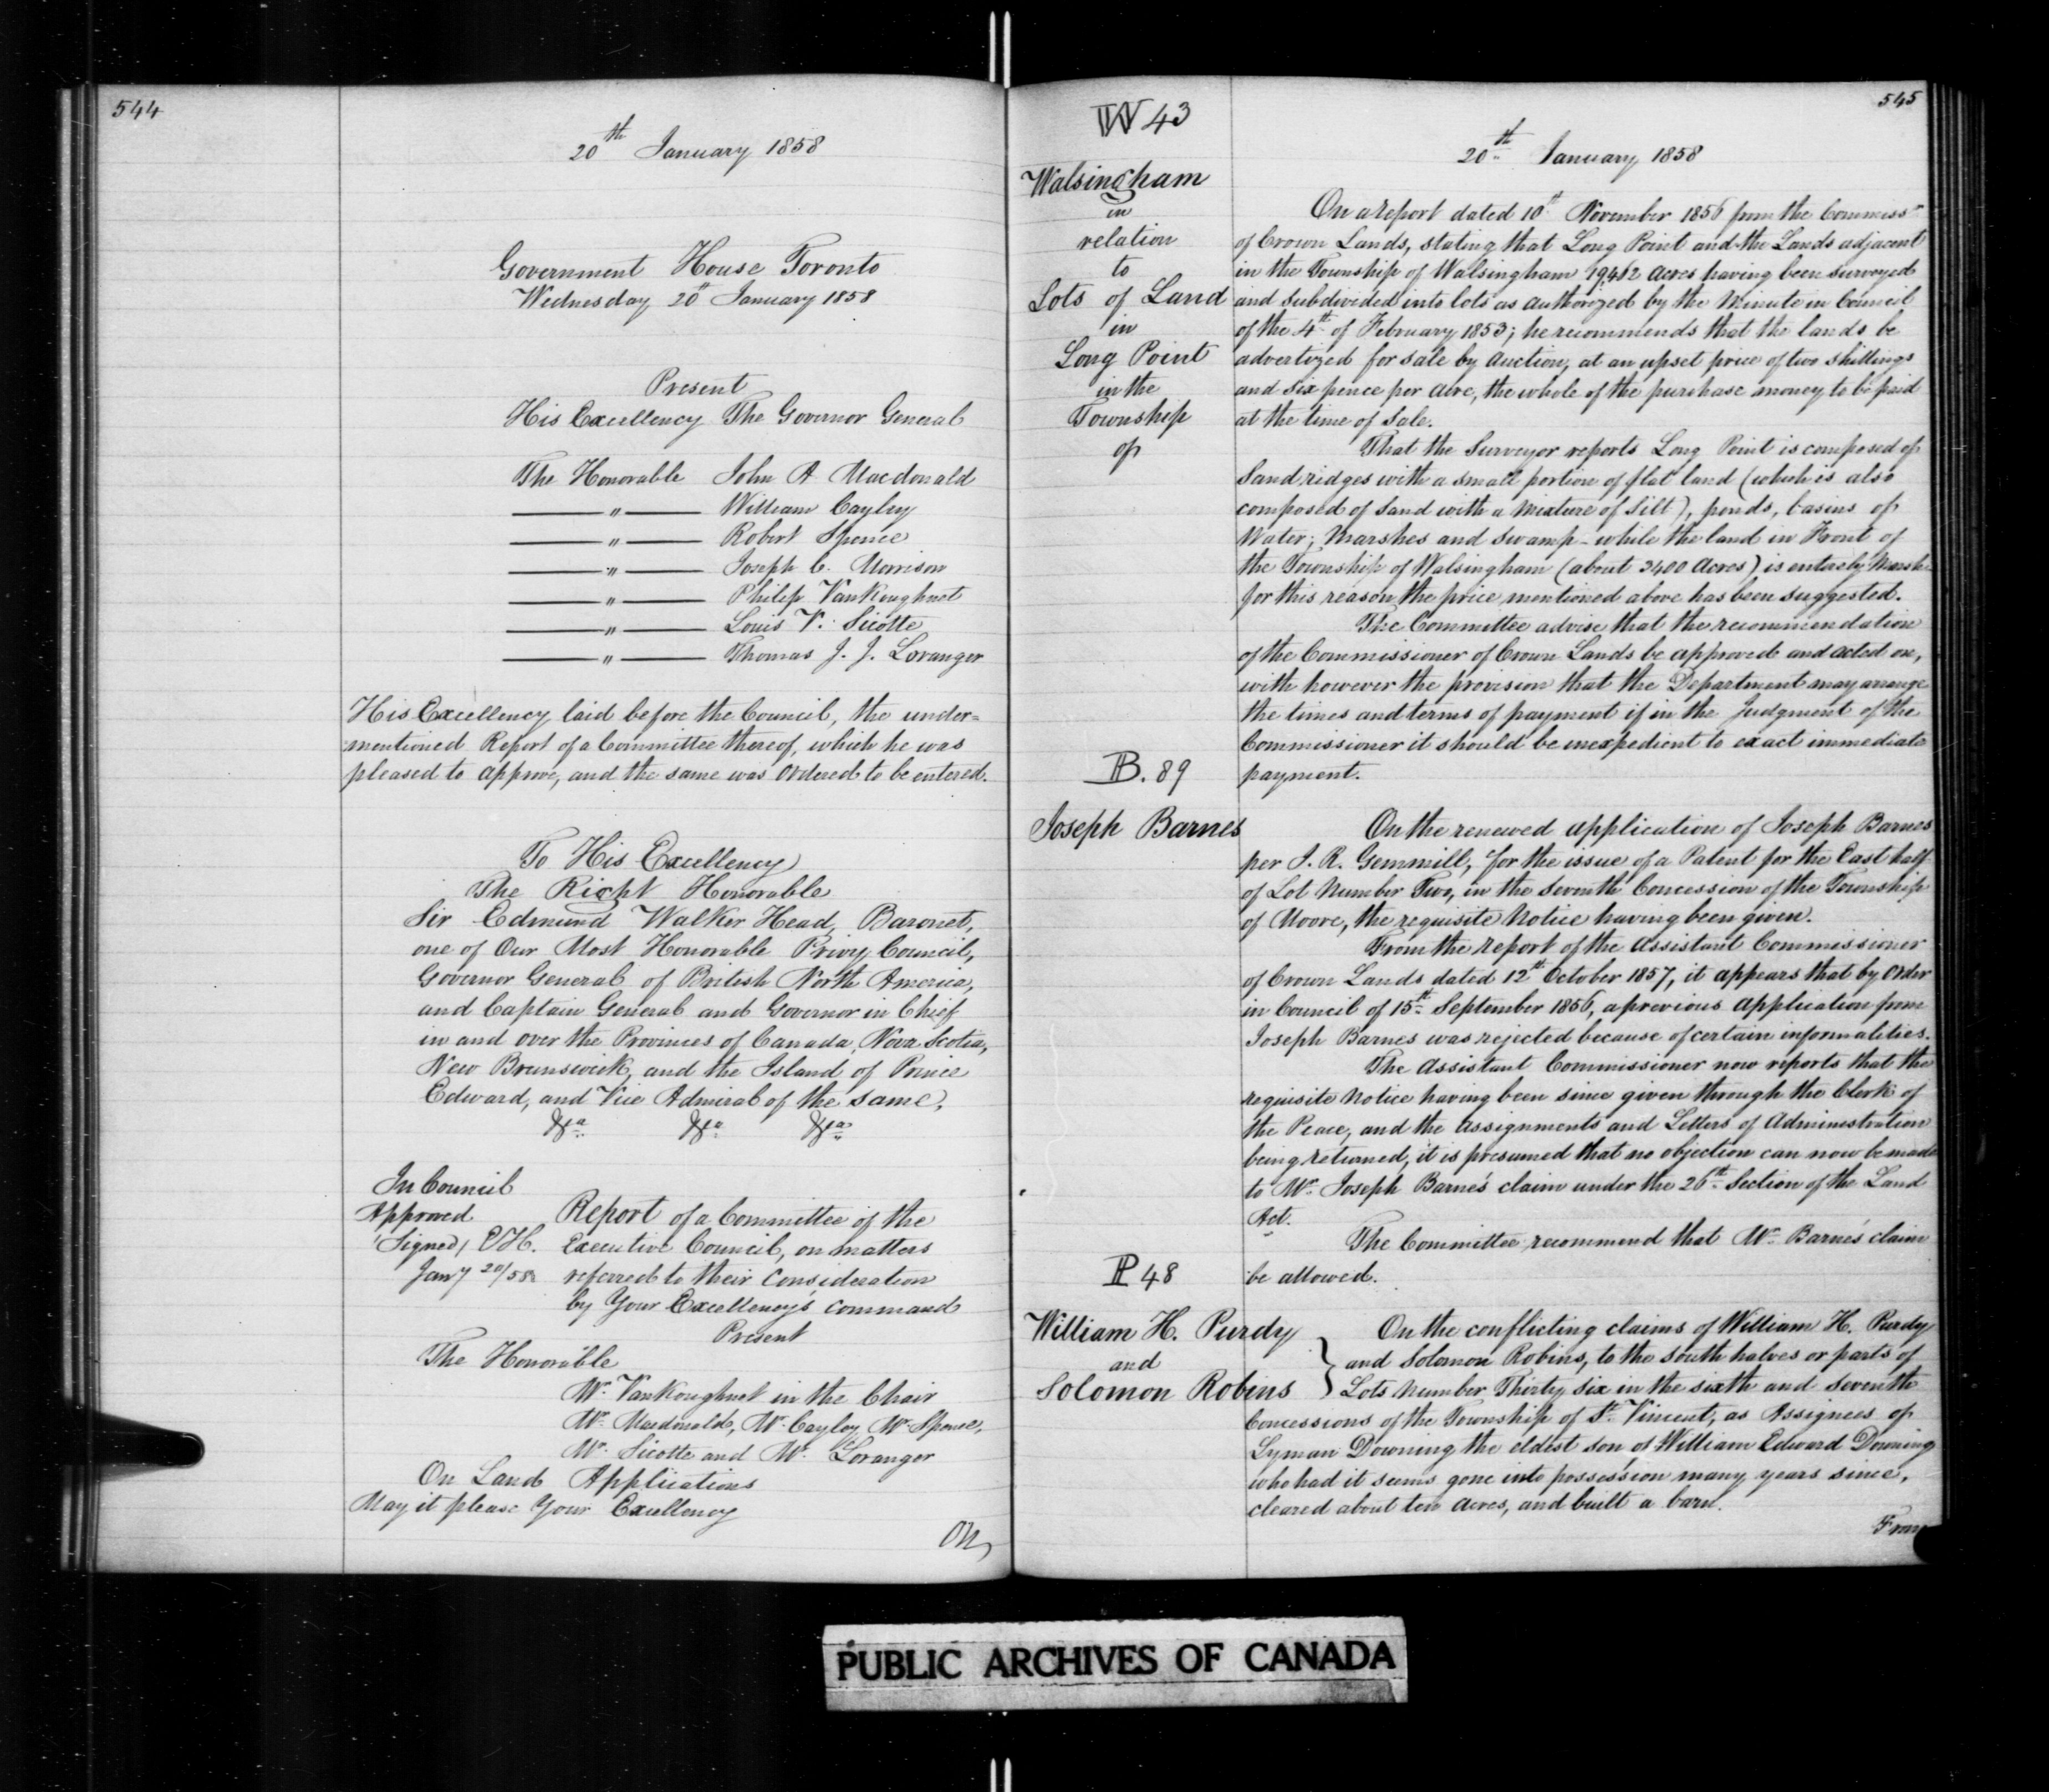 544
20th January 1858
Government House Toronto
Wednesday 20th January 1858
Present
His Excellency The Governor General
The Honorable John A Macdonald
—"— William Cayley
—"— Robert Spence
—"— Joseph C. Morrison
—"— Philip VanKoughnet
—"— Louis V. Sicotte
—"— Thomas J. J. Loranger
His Excellency laid before the Council, the under=
mentioned Report of a Committee thereof, which he was
pleased to approve, and the same was Ordered to be entered.
To His Excellency
The Right Honorable
Sir Edmund Walker Head, Baronet,
one of Our Most Honorable Privy Council,
Governor General of British North America,
and Captain General and Governor in Chief
in and over the Provinces of Canada, Nova Scotia,
New Brunswick, and the Island of Prince
Edward, and Vice Admiral of the same,
&ca &ca &ca
In Council
Approved
(Signed) E.H.
Jany 20/58
Report of a Committee of the
Executive Council, on matters
referred to their Consideration
by Your Excellency's command
Present
The Honorable
Mr. VanKoughnet in the Chair
Mr. Macdonald, Mr. Cayley, Mr. Spence,
Mr. Sicotte and Mr. Loranger
On Land Applications
May it please Your Excellency
On
545
W 43
20th January 1858
Walsingham
in
relation
to
Lots of Land
in
Long Point
in the
Township
of
On a report dated 10th November 1856 from the Commissr
of Crown Lands, stating that Long Point and the Lands adjacent
in the Township of Walsingham 19,412 Acres having been surveyed
and subdivided into lots as authorized by the Minute in Council
of the 4th of February 1853; he recommends that the lands be
advertized for sale by Auction, at an upset price of two shillings
and six pence per Acre, the whole of the purchase money to be paid
at the time of Sale.
That the Surveyor reports Long Point is composed of
Sand ridges with a small portion of flat land (which is also
composed of sand with a Mixture of Silt), ponds, basins of
Water; Marshes and Swamp - while the land in Front of
the Township of Walsingham (about 3400 Acres) is entirely Marsh
for this reason the price mentioned above has been suggested.
The Committee advise that the recommendation
of the Commissioner of Crown Lands be approved and acted on,
with however the provision that the Department may arrange
the times and terms of payment if in the Judgment of the
Commissioner it should be inexpedient to exact immediate
payment.
B. 89
Joseph Barnes
On the renewed application of Joseph Barnes
per J. R. Gemmill, for the issue of a Patent for the East half
of Lot Number Two, in the Seventh Concession of the Township
of Moore, the requisite Notice having been given.
From the report of the Assistant Commissioner
of Crown Lands dated 12th October 1857, it appears that by Order
in Council of 15th September 1856, a previous Application from
Joseph Barnes was rejected because of certain informalities.
The Assistant Commissioner now reports that the
requisite Notice having been since given through the Clerk of
the Peace, and the Assignments and Letters of Administration
being returned, it is presumed that no objection can now be made
to Mr. Joseph Barne's claim under the 26th Section of the Land
Act.
The Committee recommend that Mr. Barne's claim
be allowed.
P 48
William H. Purdy
and
Solomon Robins
On the conflicting claims of William H. Purdy
and Solomon Robins, to the South halves or parts of
Lots Number Thirty Six in the sixth and Seventh
Concessions of the Township of St. Vincent, as Assignees of
Lyman Downing the eldest son of William Edward Downing
who had it seems gone into possession many years since,
cleared about ten Acres, and built a barn.
From
PUBLIC ARCHIVES OF CANADA